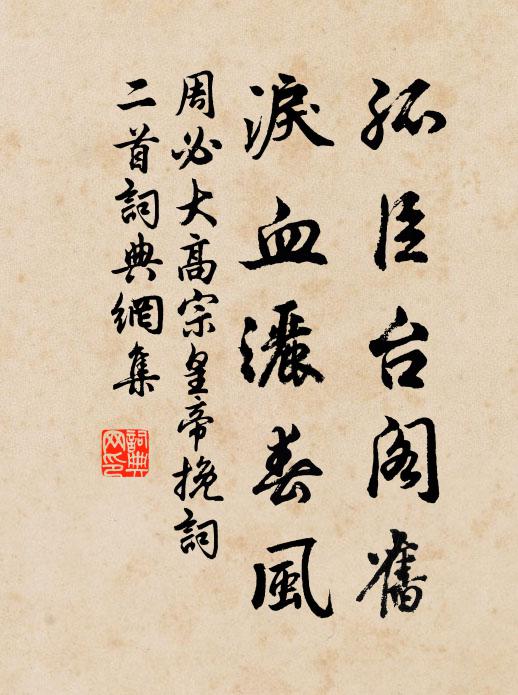 孤臣台阁舊
淚血灑春風
周必大高宗皇帝挽詞
二首詞典網集
詞典
网印